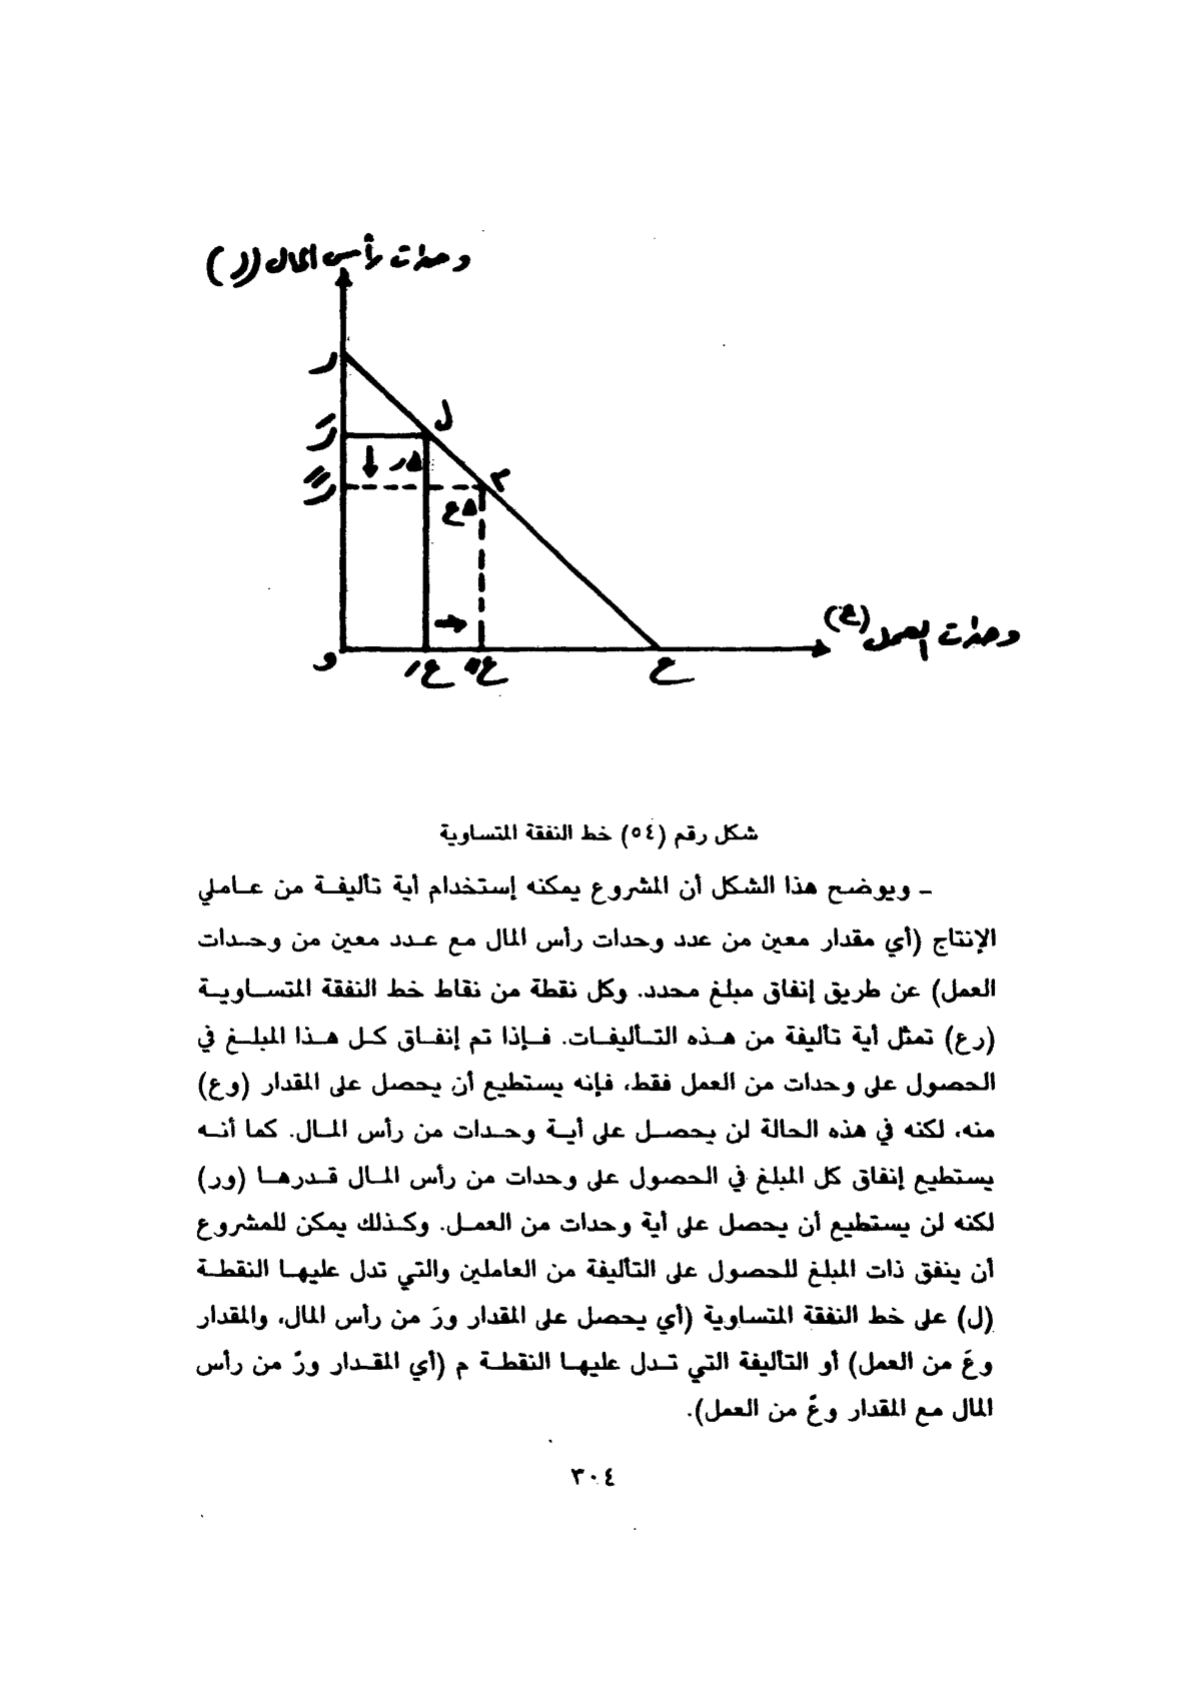 وحدات رأس المال (ر)
ر
ل
رَ
Δر
م
رً
Δع
وحدات العمل (ع)
و
عَ
عً
ع
شكل رقم (٥٤) خط النفقة المتساوية
ـ ويوضح هذا الشكل أن المشروع يمكنه إستخدام أية تأليفة من عاملي
الإنتاج (أي مقدار معين من عدد وحدات رأس المال مع عدد معين من وحدات
العمل) عن طريق إنفاق مبلغ محدد. وكل نقطة من نقاط خط النفقة المتساوية
(رع) تمثل أية تأليفة من هذه التأليفات. فإذا تم إنفاق كل هذا المبلغ في
الحصول على وحدات من العمل فقط، فإنه يستطيع أن يحصل على المقدار (وع)
منه، لكنه في هذه الحالة لن يحصل على أية وحدات من رأس المال. كما أنه
يستطيع إنفاق كل المبلغ في الحصول على وحدات من رأس المال قدرها (ور)
لكنه لن يستطيع أن يحصل على أية وحدات من العمل. وكذلك يمكن للمشروع
أن ينفق ذات المبلغ للحصول على التأليفة من العاملين والتي تدل عليها النقطة
(ل) على خط النفقة المتساوية (أي يحصل على المقدار ورَ من رأس المال، والمقدار
وعَ من العمل) أو التأليفة التي تدل عليها النقطة م (أي المقدار ورً من رأس
المال مع المقدار وعً من العمل).
٣٠٤